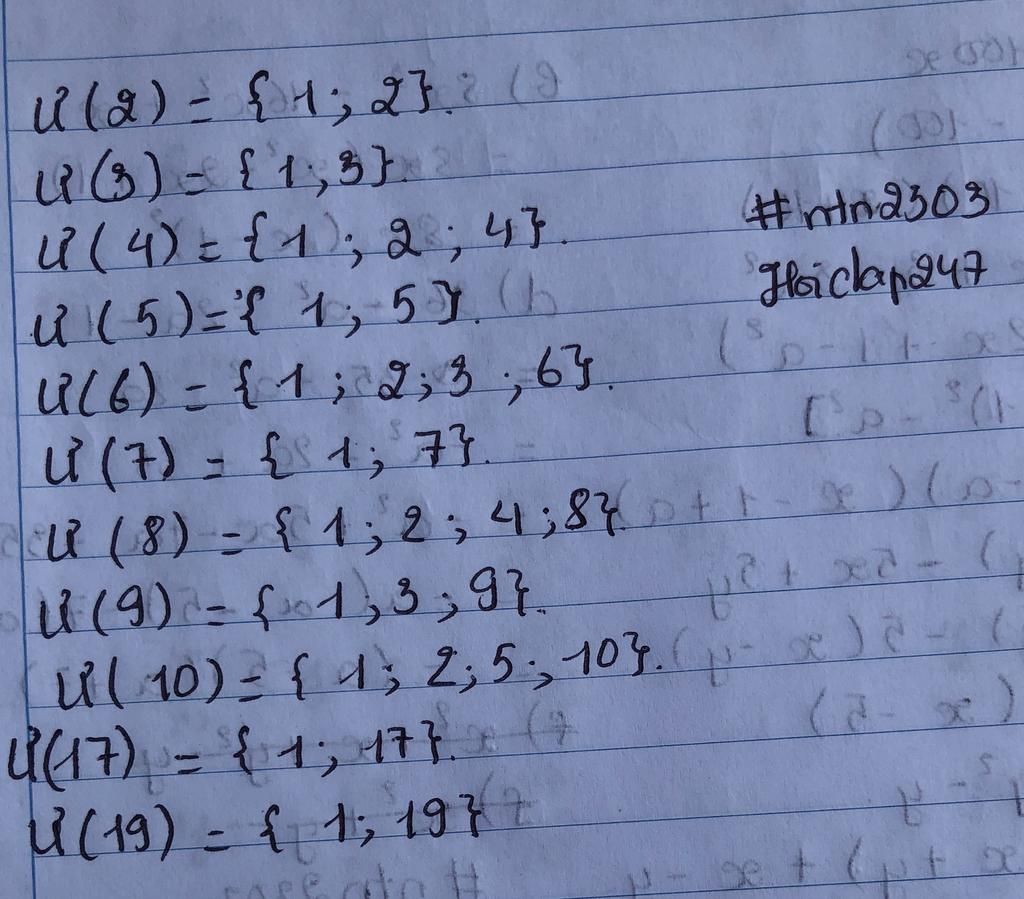 Ư(2) = {1; 2}.
Ư(3) = {1; 3}.
Ư(4) = {1; 2; 4}.
#ntn2303
Ư(5) = {1; 5}.
Hoidap247
Ư(6) = {1; 2; 3; 6}.
Ư(7) = {1; 7}.
Ư(8) = {1; 2; 4; 8}.
Ư(9) = {1; 3; 9}.
Ư(10) = {1; 2; 5; 10}.
Ư(17) = {1; 17}.
Ư(19) = {1; 19}